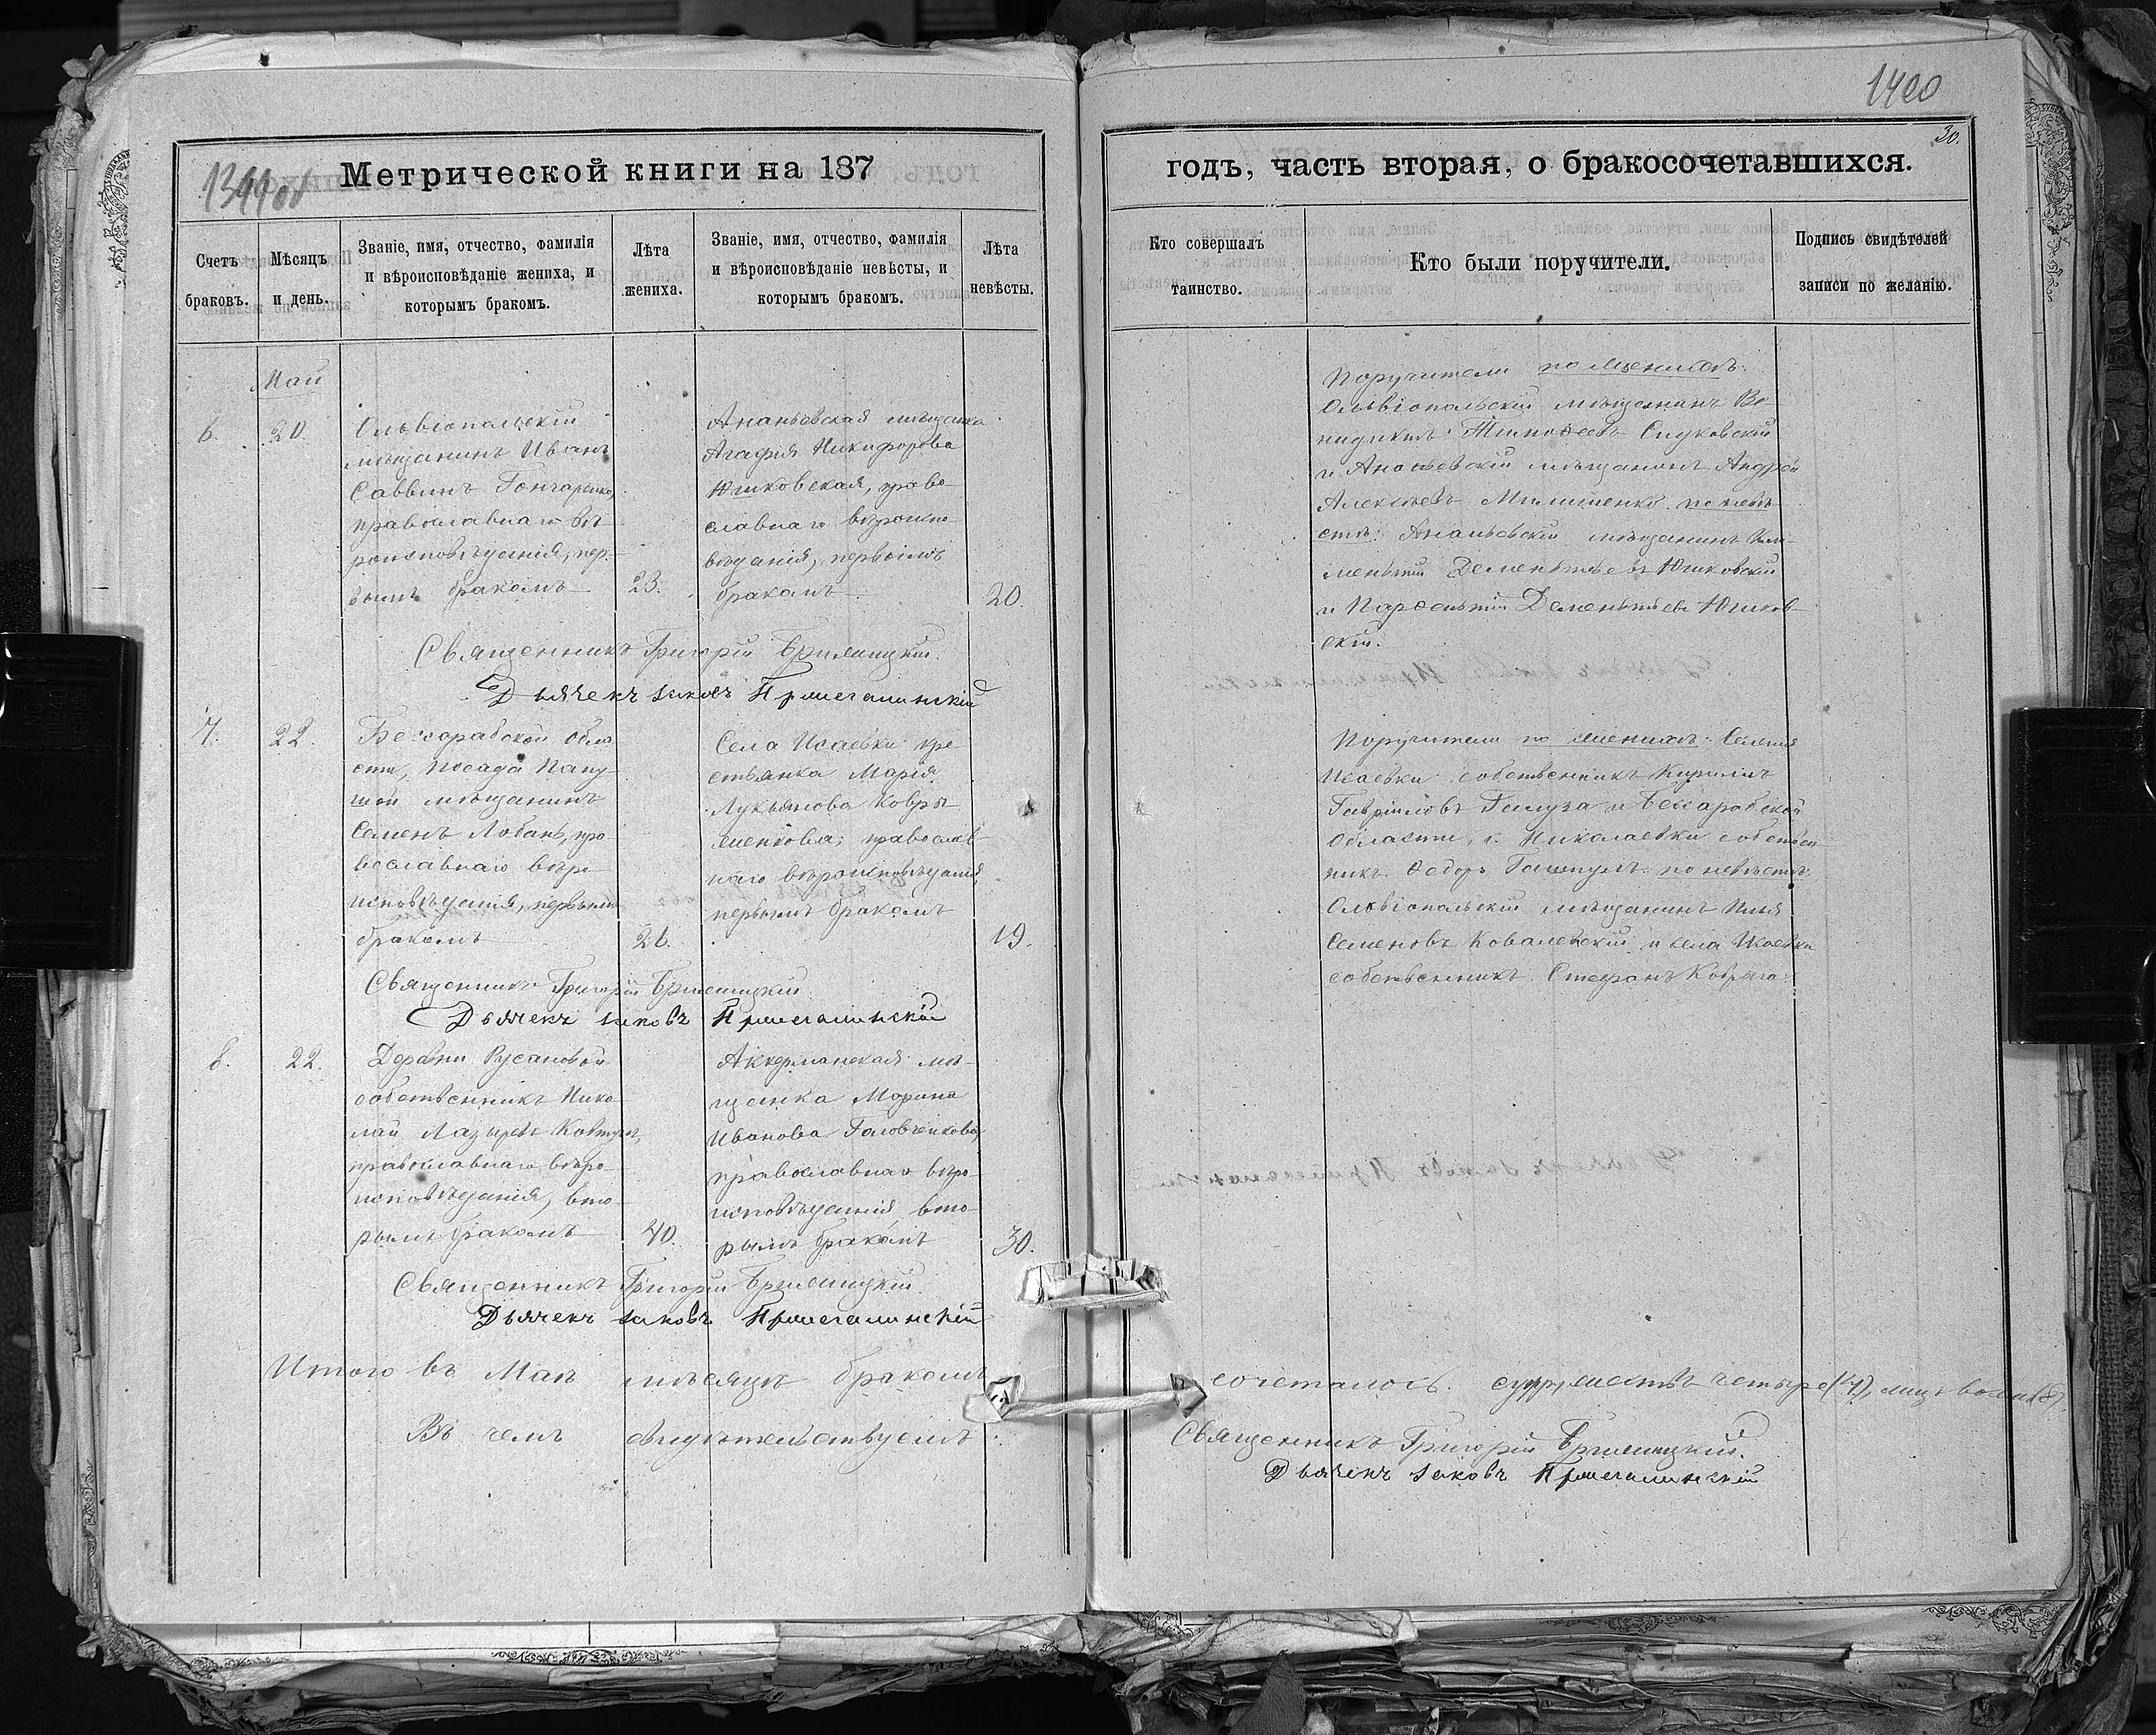 1400
30.
Метрической книги на 187
годъ, часть вторая, о бракосочетавшихся.
Счетъ браковъ.
Мѣсяцъ и день.
Званіе, имя, отчество, фамилія
и вѣроисповѣданіе жениха, и
которымъ бракомъ.
Лѣта
жениха.
Званіе, имя, отчество, фамилія
и вѣроисповѣданіе невѣсты, и
которымъ бракомъ.
Лѣта
невѣсты.
Кто совершалъ
таинство.
Кто были поручители.
Подпись свидѣтелей
записи по желанію.
Май
6.
20.
Ольвіопольскій
мѣщанинъ Иванъ
Саввинъ Гончаренко
православнаго вѣ-
роисповѣданія, пер-
вымъ бракомъ
23.
Ананьевская мѣщанка
Агафія Никифорова
Юшковская, право-
славнаго вѣроиспо-
вѣданія, первымъ
бракомъ
20.
Поручители по женихѣ:
Ольвіопольскій мѣщанинъ Ве-
недиктъ Тимофеевъ
и Ананьевскій мѣщанинъ Андрей
Алексѣевъ по невѣ-
стѣ: Ананьевскій мѣщанинъ Кли-
ментій Дементьевъ Юшковскій
и Дементьевъ Юшков-
скій.
Священникъ Григорій
Дьячекъ Іаковъ
7.
22.
Бессарабской обла-
сти, посада Папу-
шой мѣщанинъ
Семенъ Лобанъ, пра-
вославнаго вѣро-
исповѣданія, первымъ
бракомъ
Села Исаевки кре-
стьянка Марія
Лукьянова
православ-
наго вѣроисповѣданія,
первымъ бракомъ
19.
Поручители по женихѣ: Селенія
Исаевки собственникъ Кириллъ
Гавріиловъ и Бессарабской
области, с. Николаевки собствен-
никъ Федоръ по невѣстѣ:
Ольвіопольскій мѣщанинъ Илья
Семеновъ Ковалевскій и села Исаевки
собственникъ Стефанъ Ковряга.
Священникъ Григорій
Дьячекъ Іаковъ
8.
22.
Деревни Русановой
собственникъ Нико-
лай
православнаго вѣро-
исповѣданія, вто-
рымъ бракомъ
40.
Аккерманская мѣ-
щанка Марина
Иванова Головченкова
православнаго вѣро-
исповѣданія, вто-
рымъ бракомъ
30.
Священникъ Григорій
Дьячекъ Іаковъ
Итого въ Маѣ мѣсяцѣ бракомъ сочеталось супружествъ четыре (4), лицъ восемь (8).
Въ чемъ свидѣтельствуемъ:
Священникъ Григорій
Дьячекъ Іаковъ